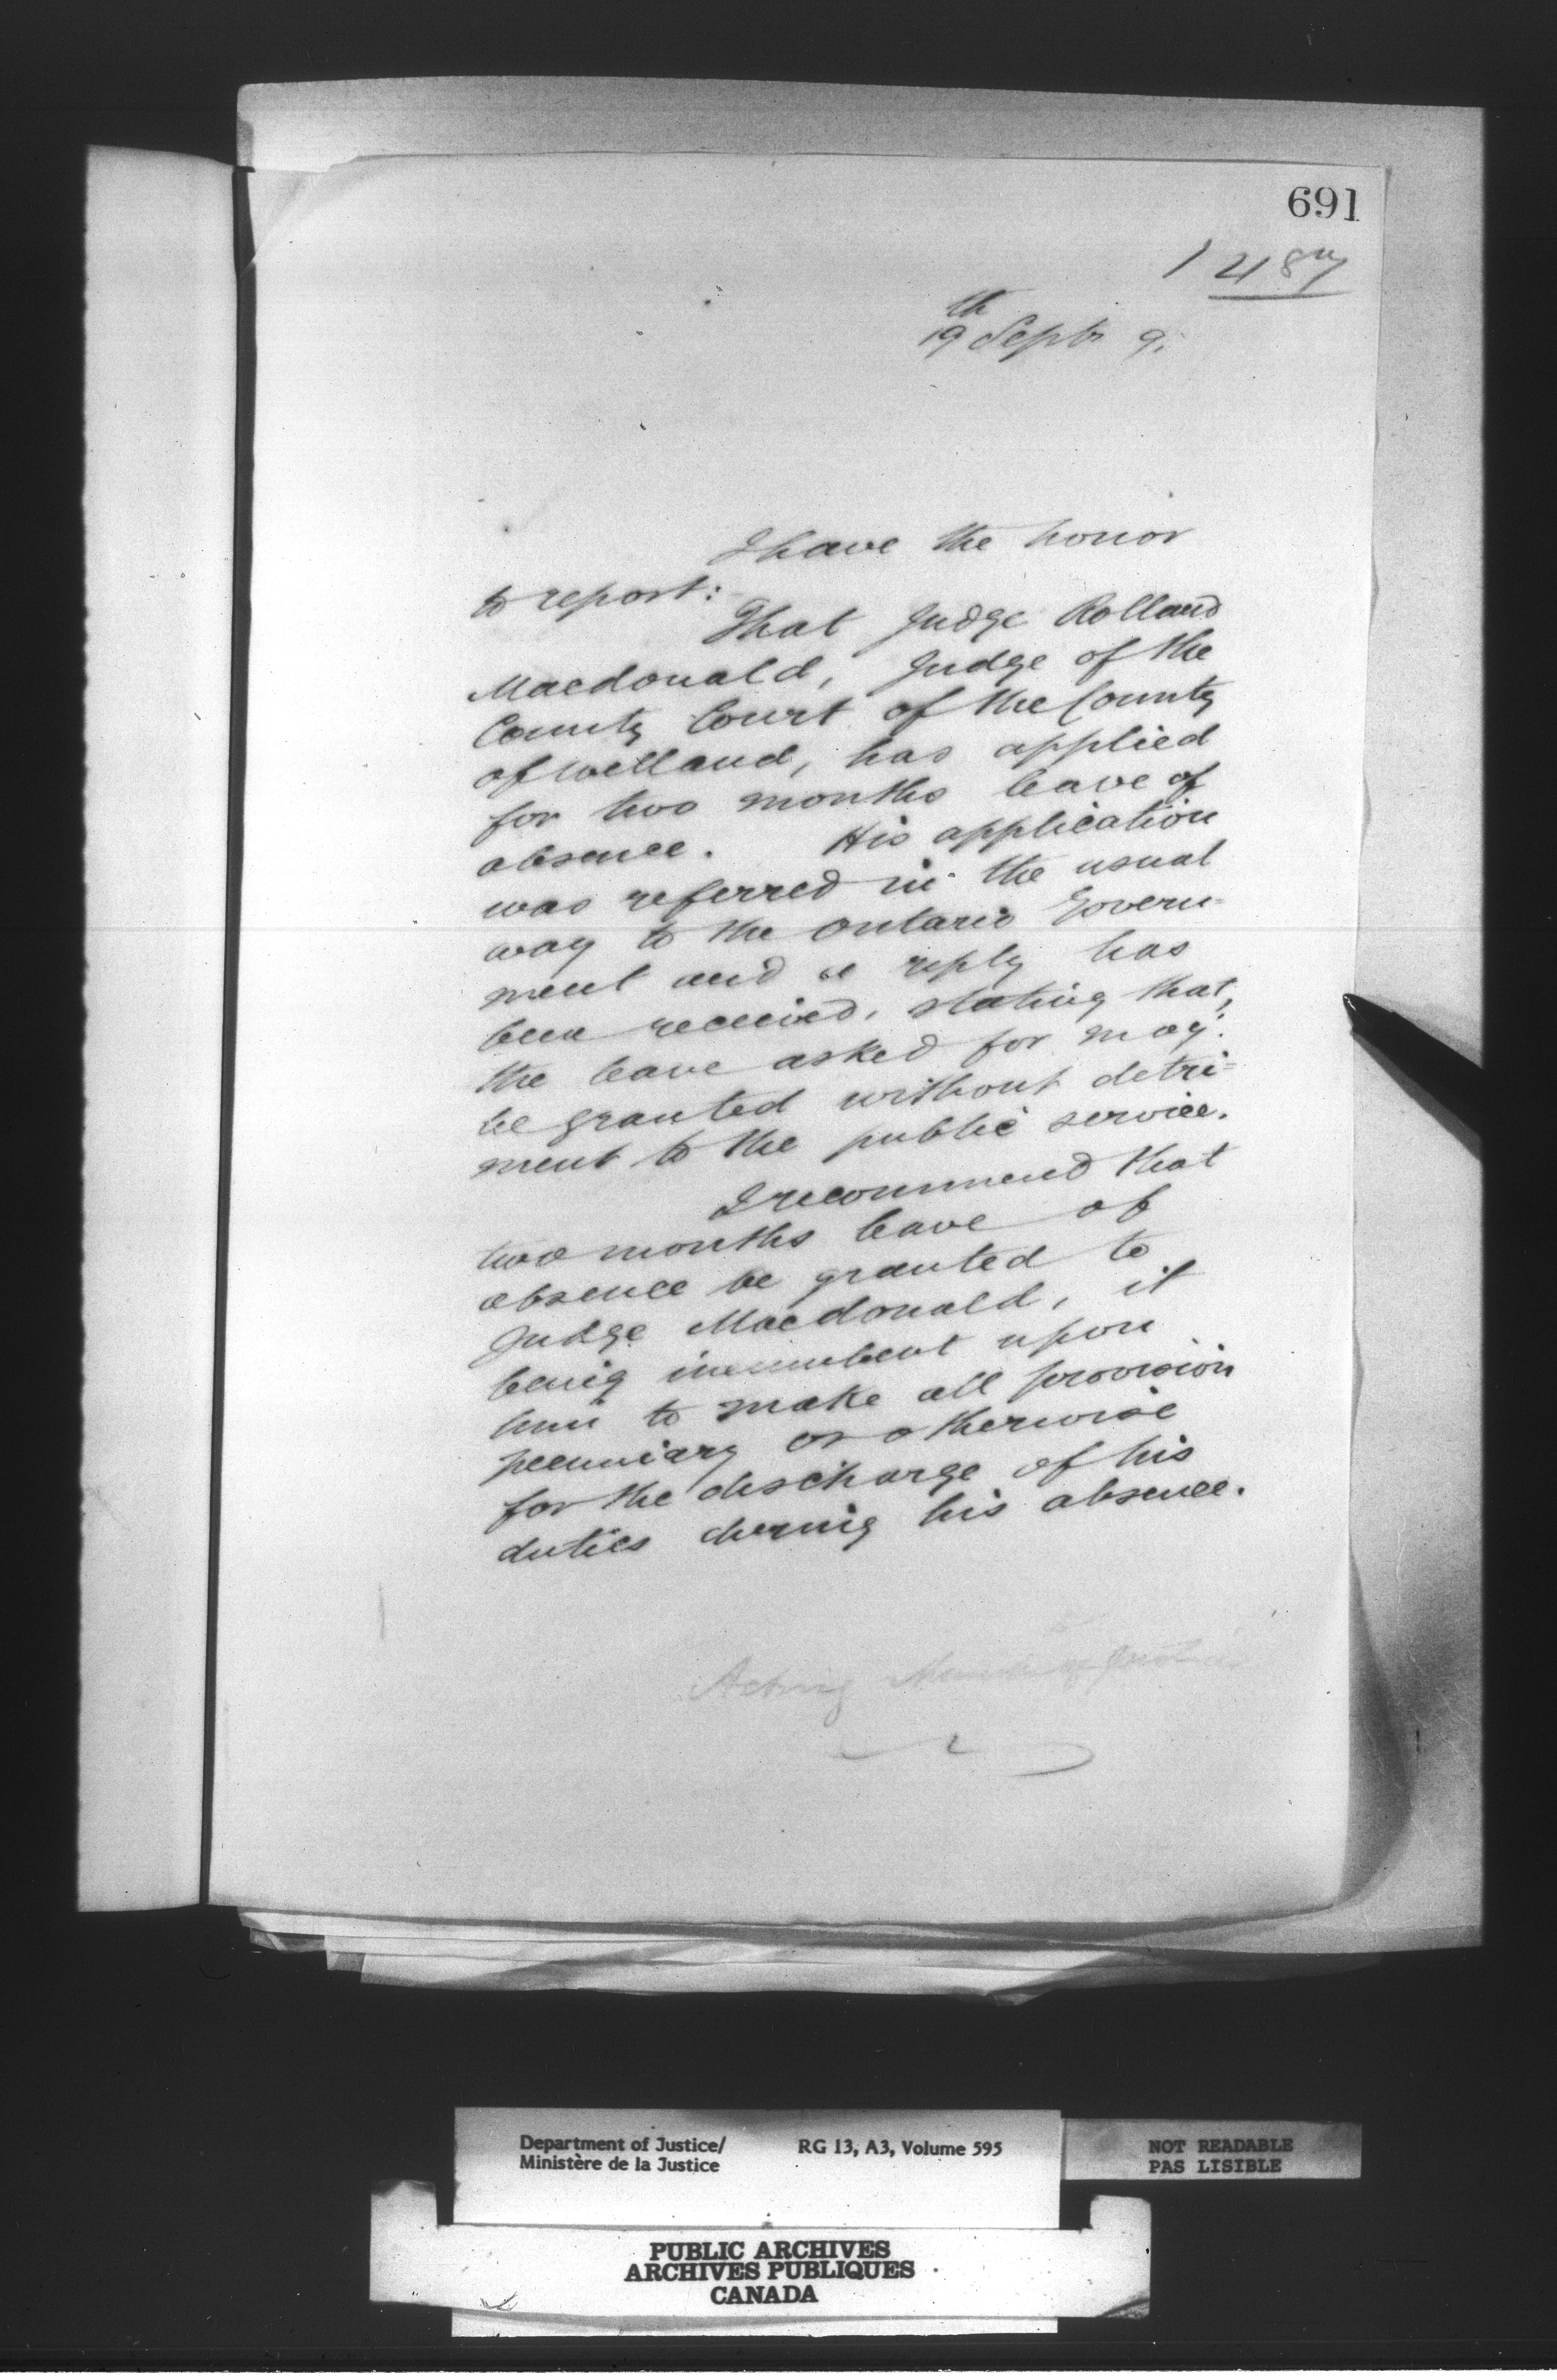 691
1487
19th Septr 9.
I have the honor
to report:
That Judge Rolland
Macdonald, Judge of the
County Court of the County
of Welland, has applied
for two months leave of
absence. His application
was referred in the usual
way to the Ontario Govern=
ment and a reply has
been received, stating that,
the leave asked for may
be granted without detri=
ment to the public service.
I recommend that
two months leave of
absence be granted to
Judge Macdonald, it
being incumbent upon
him to make all provision
pecuniary or otherwise
for the discharge of his
duties during his absence.
Acting Minister of Justice
Department of Justice/ RG 13, A3, Volume 595
Ministère de la Justice
NOT READABLE
PAS LISIBLE
PUBLIC ARCHIVES
ARCHIVES PUBLIQUES
CANADA